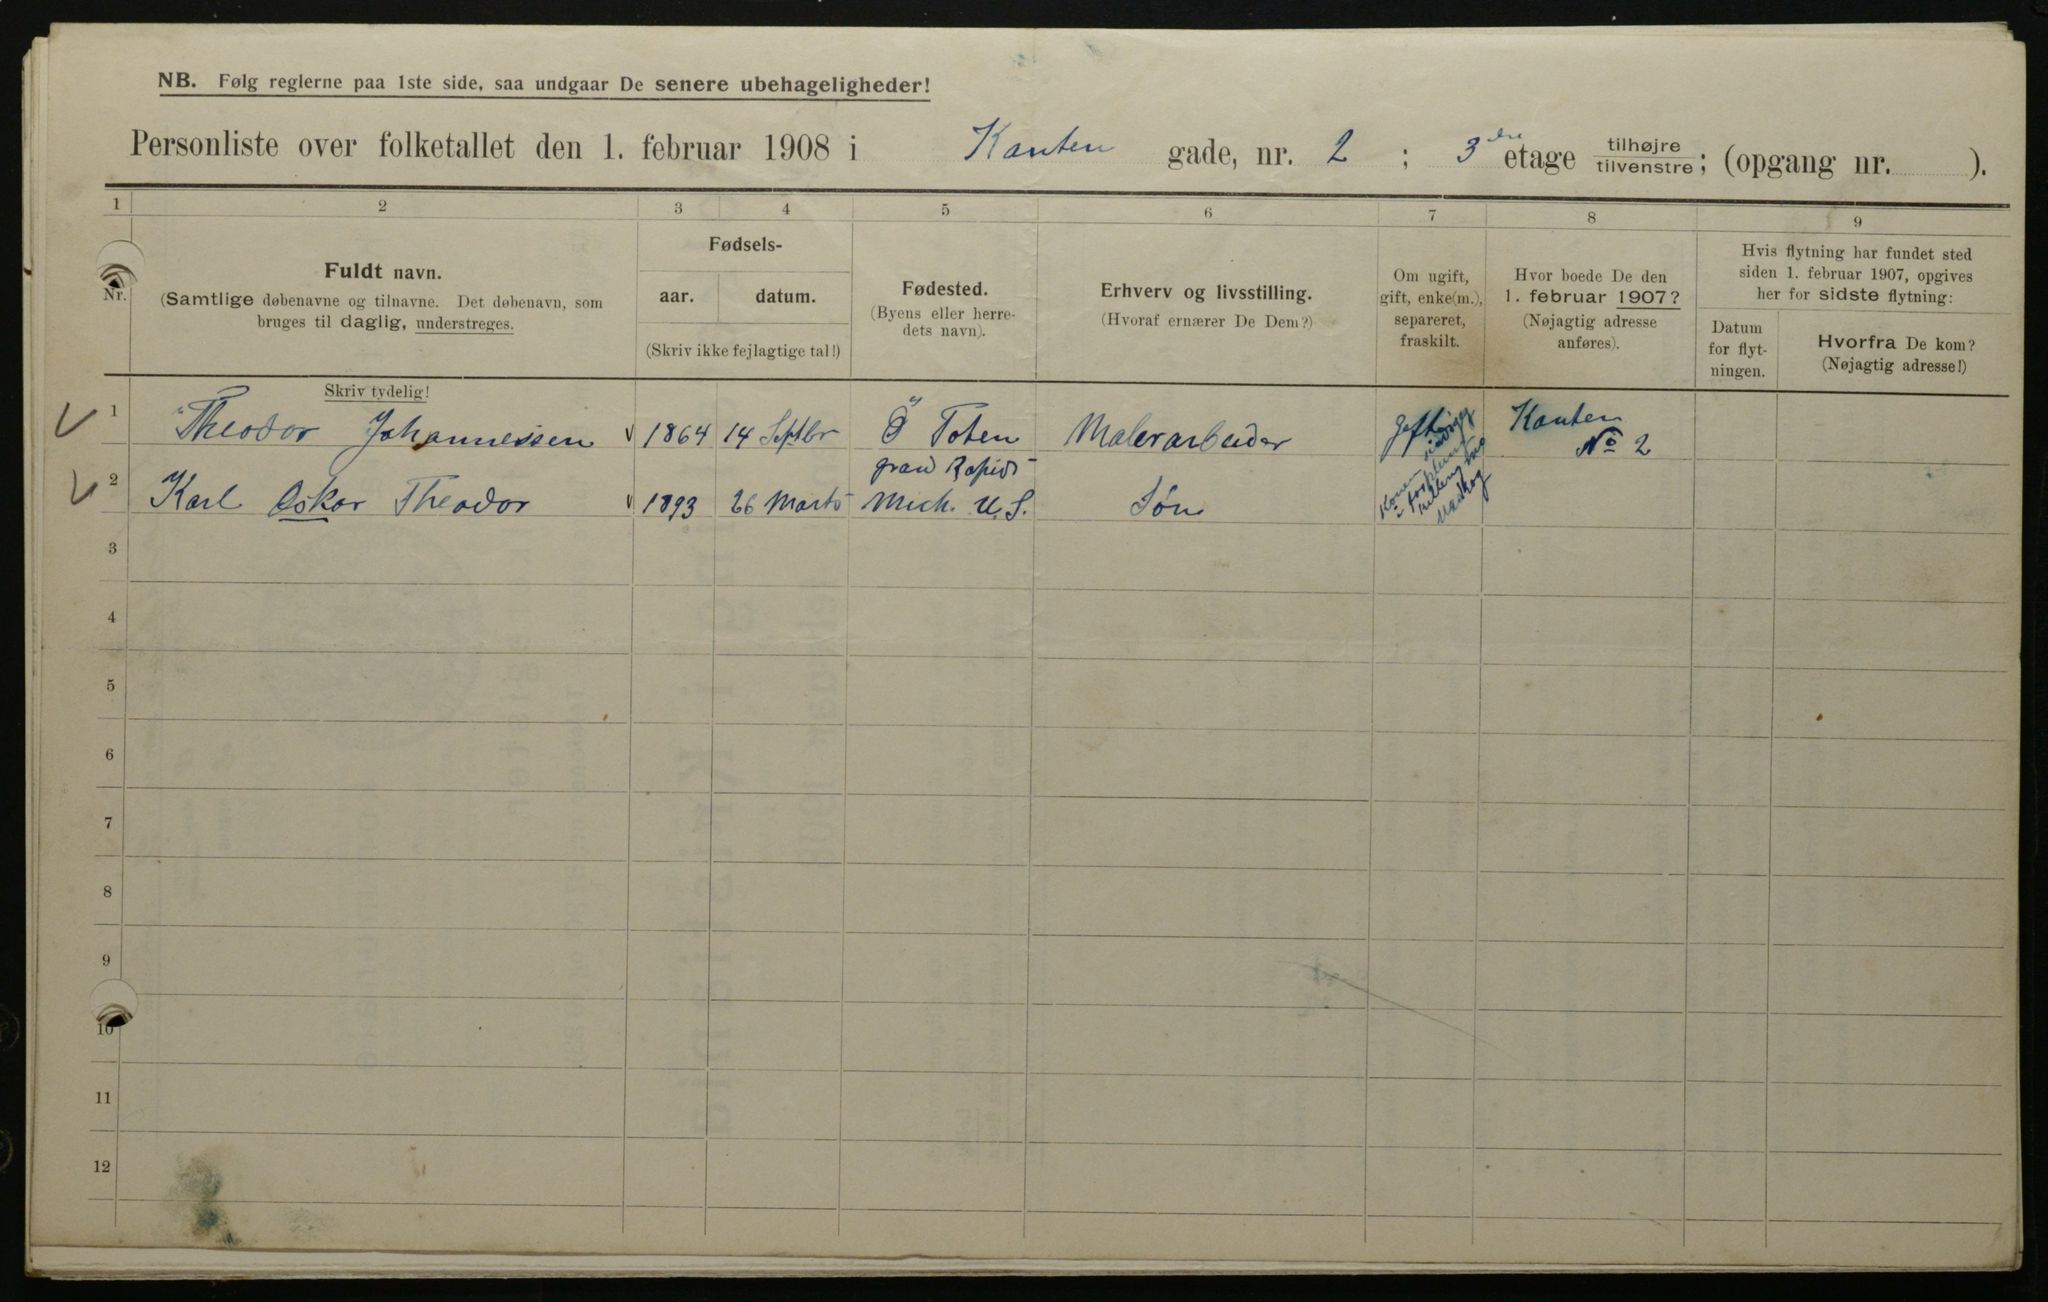 NB. Følg reglerne paa 1ste side, saa undgaar De senere ubehageligheder!
Personliste over folketallet den 1. februar 1908 i Kanten gade, nr. 2 ; 3dre etage tilhøjre tilvenstre; (opgang nr. ).
1 2 3 4 5 6 7 8 9
Nr.
Fuldt navn.
(Samtlige døbenavne og tilnavne. Det døbenavn, som
bruges til daglig, understreges.
Skriv tydelig!
Fødsels-
aar. datum.
(Skriv ikke fejlagtige tal!)
Fødested.
(Byens eller herre-
dets navn).
Erhverv og livsstilling.
(Hvoraf ernærer De Dem?)
Om ugift,
gift, enke(m.),
separeret,
fraskilt.
Hvor boede De den
1. februar 1907?
(Nøjagtig adresse
anføres).
Hvis flytning har fundet sted
siden 1. februar 1907, opgives
her for sidste flytning:
Datum
for flyt-
ningen.
Hvorfra De kom?
(Nøjagtig adresse!)
1 Theodor Johannessen 1864 14 Septbr Ø Toten Malerarbeider Gift Kanten
No 2
2 Karl Oskar Theodor 1893 26 Marts Grand Rapids
Mich. U.S. Søn
Konen
3
4
5
6
7
8
9
10
11
12